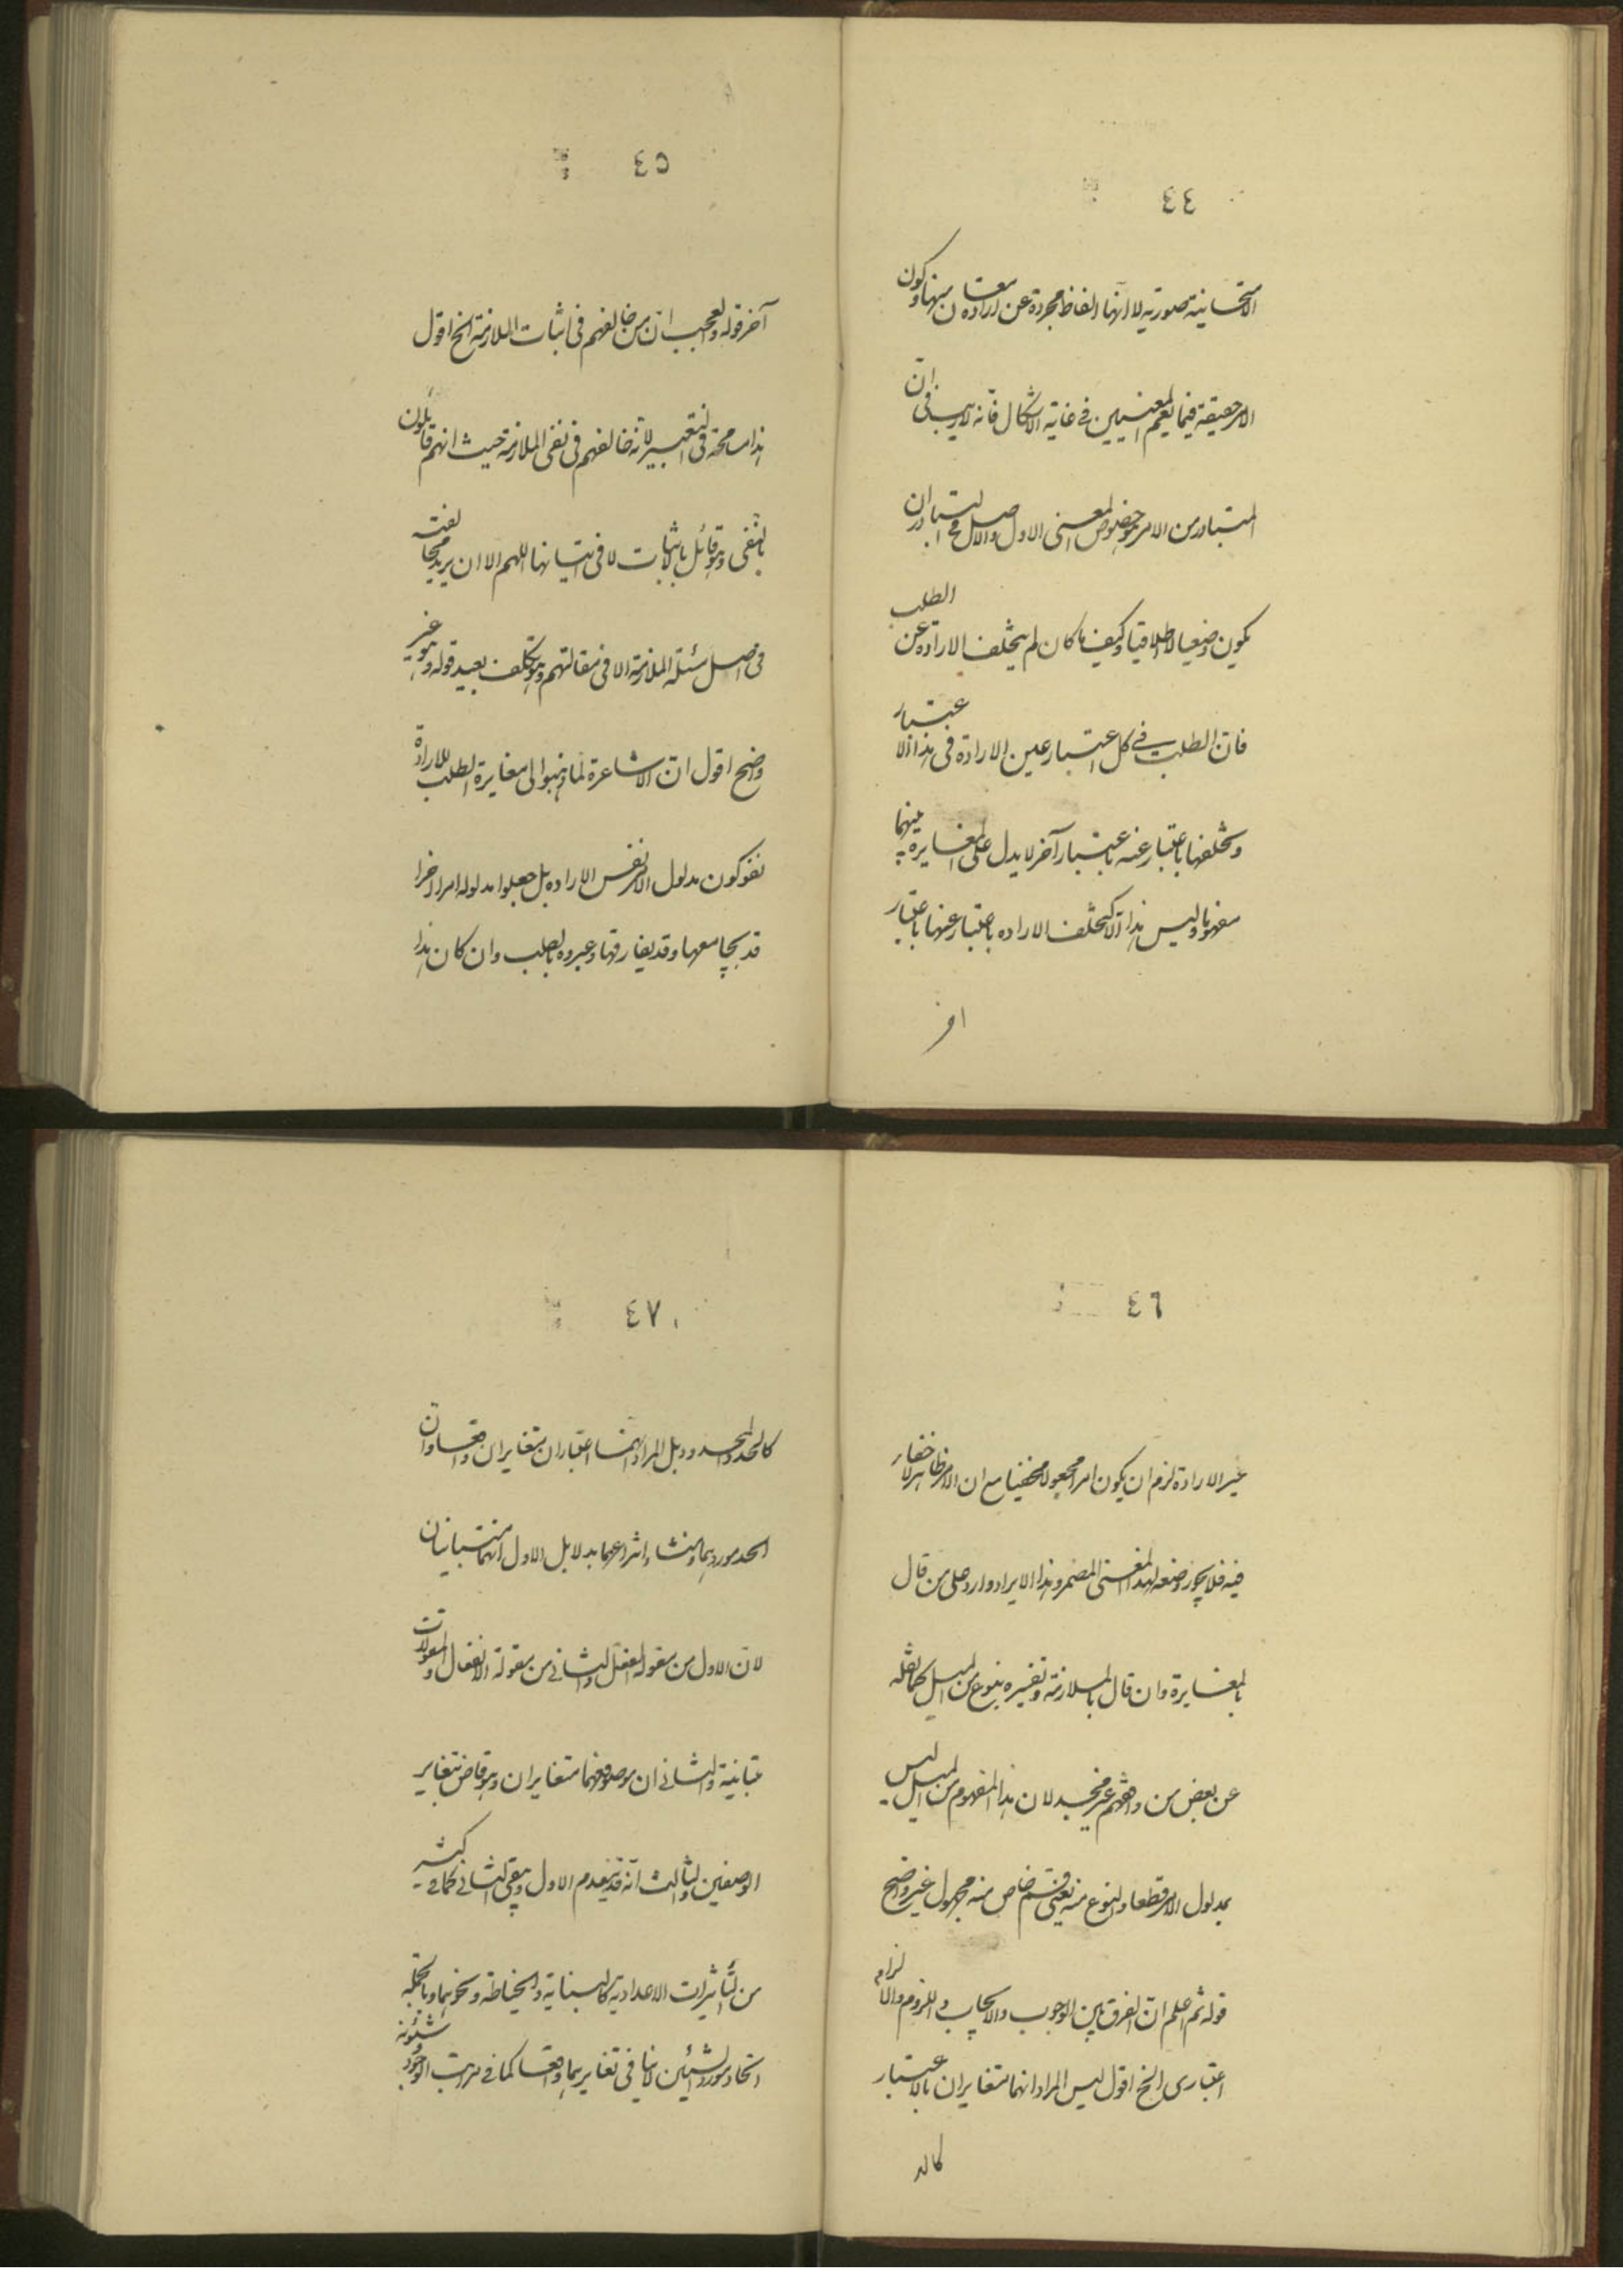 ٤٤
الامتحانية صورية لا انها الفاظ مجردة عن ارادة معنى منها وكون
الامر حقيقة فيما يعم المعنيين في غاية الاشكال فانه لا ريب في ان
المتبادر من الامر هو خصوص المعنى الاول والاصل في التبادر ان
يكون وضعيا لا اطلاقيا وكيف ما كان لم يتخلف الارادة عن الطلب
فان الطلب في كل اعتبار عين الارادة في هذا الاعتبار
وتخلفها باعتبار عنه باعتبار آخر لا يدل على المغايرة بينهما
مفهوما وليس هذا الا كتخلف الارادة باعتبار عنها باعتبار
اخر
٤٥
آخر قوله والعجب ان من خالفهم في اثبات الملازمة الخ اقول
هذا مسامحة في التعبير لانه خالفهم في نفى الملازمة حيث انهم قائلون
بالنفى وهو قائل بالاثبات لا في اثباتها اللهم الا ان يريد مخالفته
في اصل مسئلة الملازمة لا في مقالتهم وهو تكلف بعيد قوله وهو غير
واضح اقول ان الاشاعرة لما ذهبوا الى مغايرة الطلب للارادة
نفوا كون مدلول الامر نفس الارادة بل جعلوا مدلوله امرا اخرا
قد يجامعها وقد يفارقها وعبروه بالطلب وان كان هذا
٤٦
غير الارادة لزم ان يكون امرا مجهولا مخفيا مع ان الامر ظاهر لا خفاء
فيه فلا يجوز وضعه لهذا المعنى المضمر وهذا الايراد وارد على من قال
بالمغايرة وان قال بالملازمة وتفسيره بنوع من الميل كما نقله
عن بعض من وافقهم غير مجد لان هذا المفهوم من الميل ليس
بمدلول الامر قطعا والنوع منه يعنى قسم خاص منه مجهول غير واضح
قوله ثم اعلم ان الفرق بين الوجوب والايجاب واللزوم والالزام
اعتبارى الخ اقول ليس المراد انهما متغايران بالاعتبار
كالحد
٤٧
كالحد والمحدود بل المراد انهما اعتباران متغايران واقعا وان
اتحد موردهما ومنشاء انتزاعهما بدلايل الاول انهما متباينان
لان الاول من مقولة الفعل والثانى من مقولة الانفعال والمقولات
متباينة والثانى ان موصوفهما متغايران وهو قاض بتغاير
الوصفين والثالث انه قد ينعدم الاول ويبقى الثانى كما في كثير
من التأثيرات الاعدادية كالبناية والخياطة ونحوهما وبالجملة
اتحاد مورد الشيئين لا ينافى تغايرهما واقعا كما في مراتب الوجود وشئونه